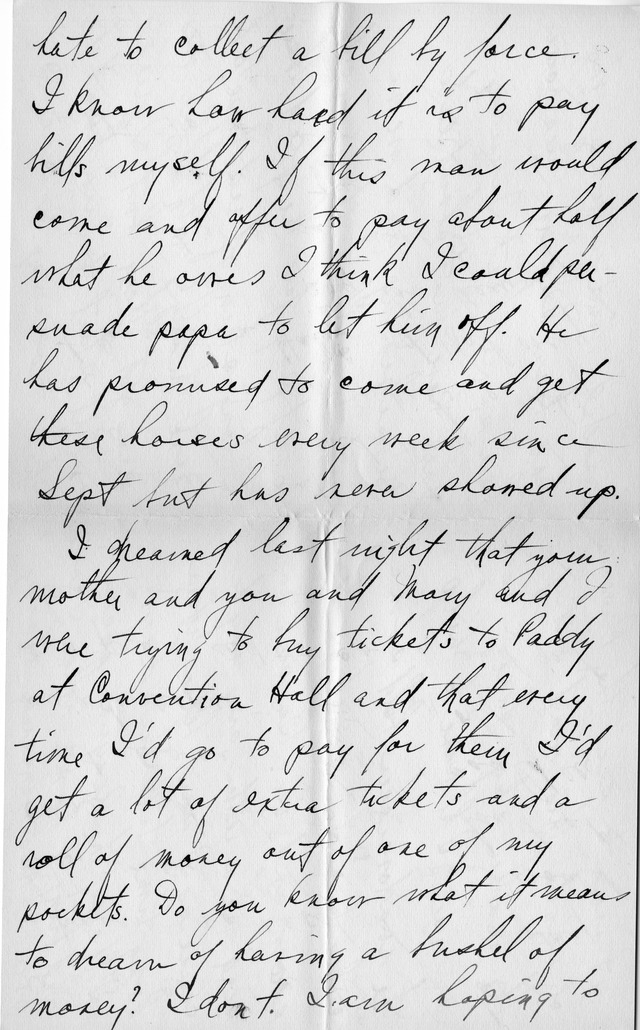 hate to collect a bill by force.
I know how hard it is to pay
bills myself. If this man would
come and offer to pay about half
what he owes I think I could per-
suade papa to let him off. He
has promised to come and get
these horses every week since
Sept but has never showed up.
I dreamed last night that your
mother and you and Mary and I
were trying to buy tickets to Paddy
at Convention Hall and that every
time I'd go to pay for them I'd
get a lot of extra tickets and a
roll of money out of one of my
pockets. Do you know what it means
to dream of having a bushel of
money? I don't. I am hoping to